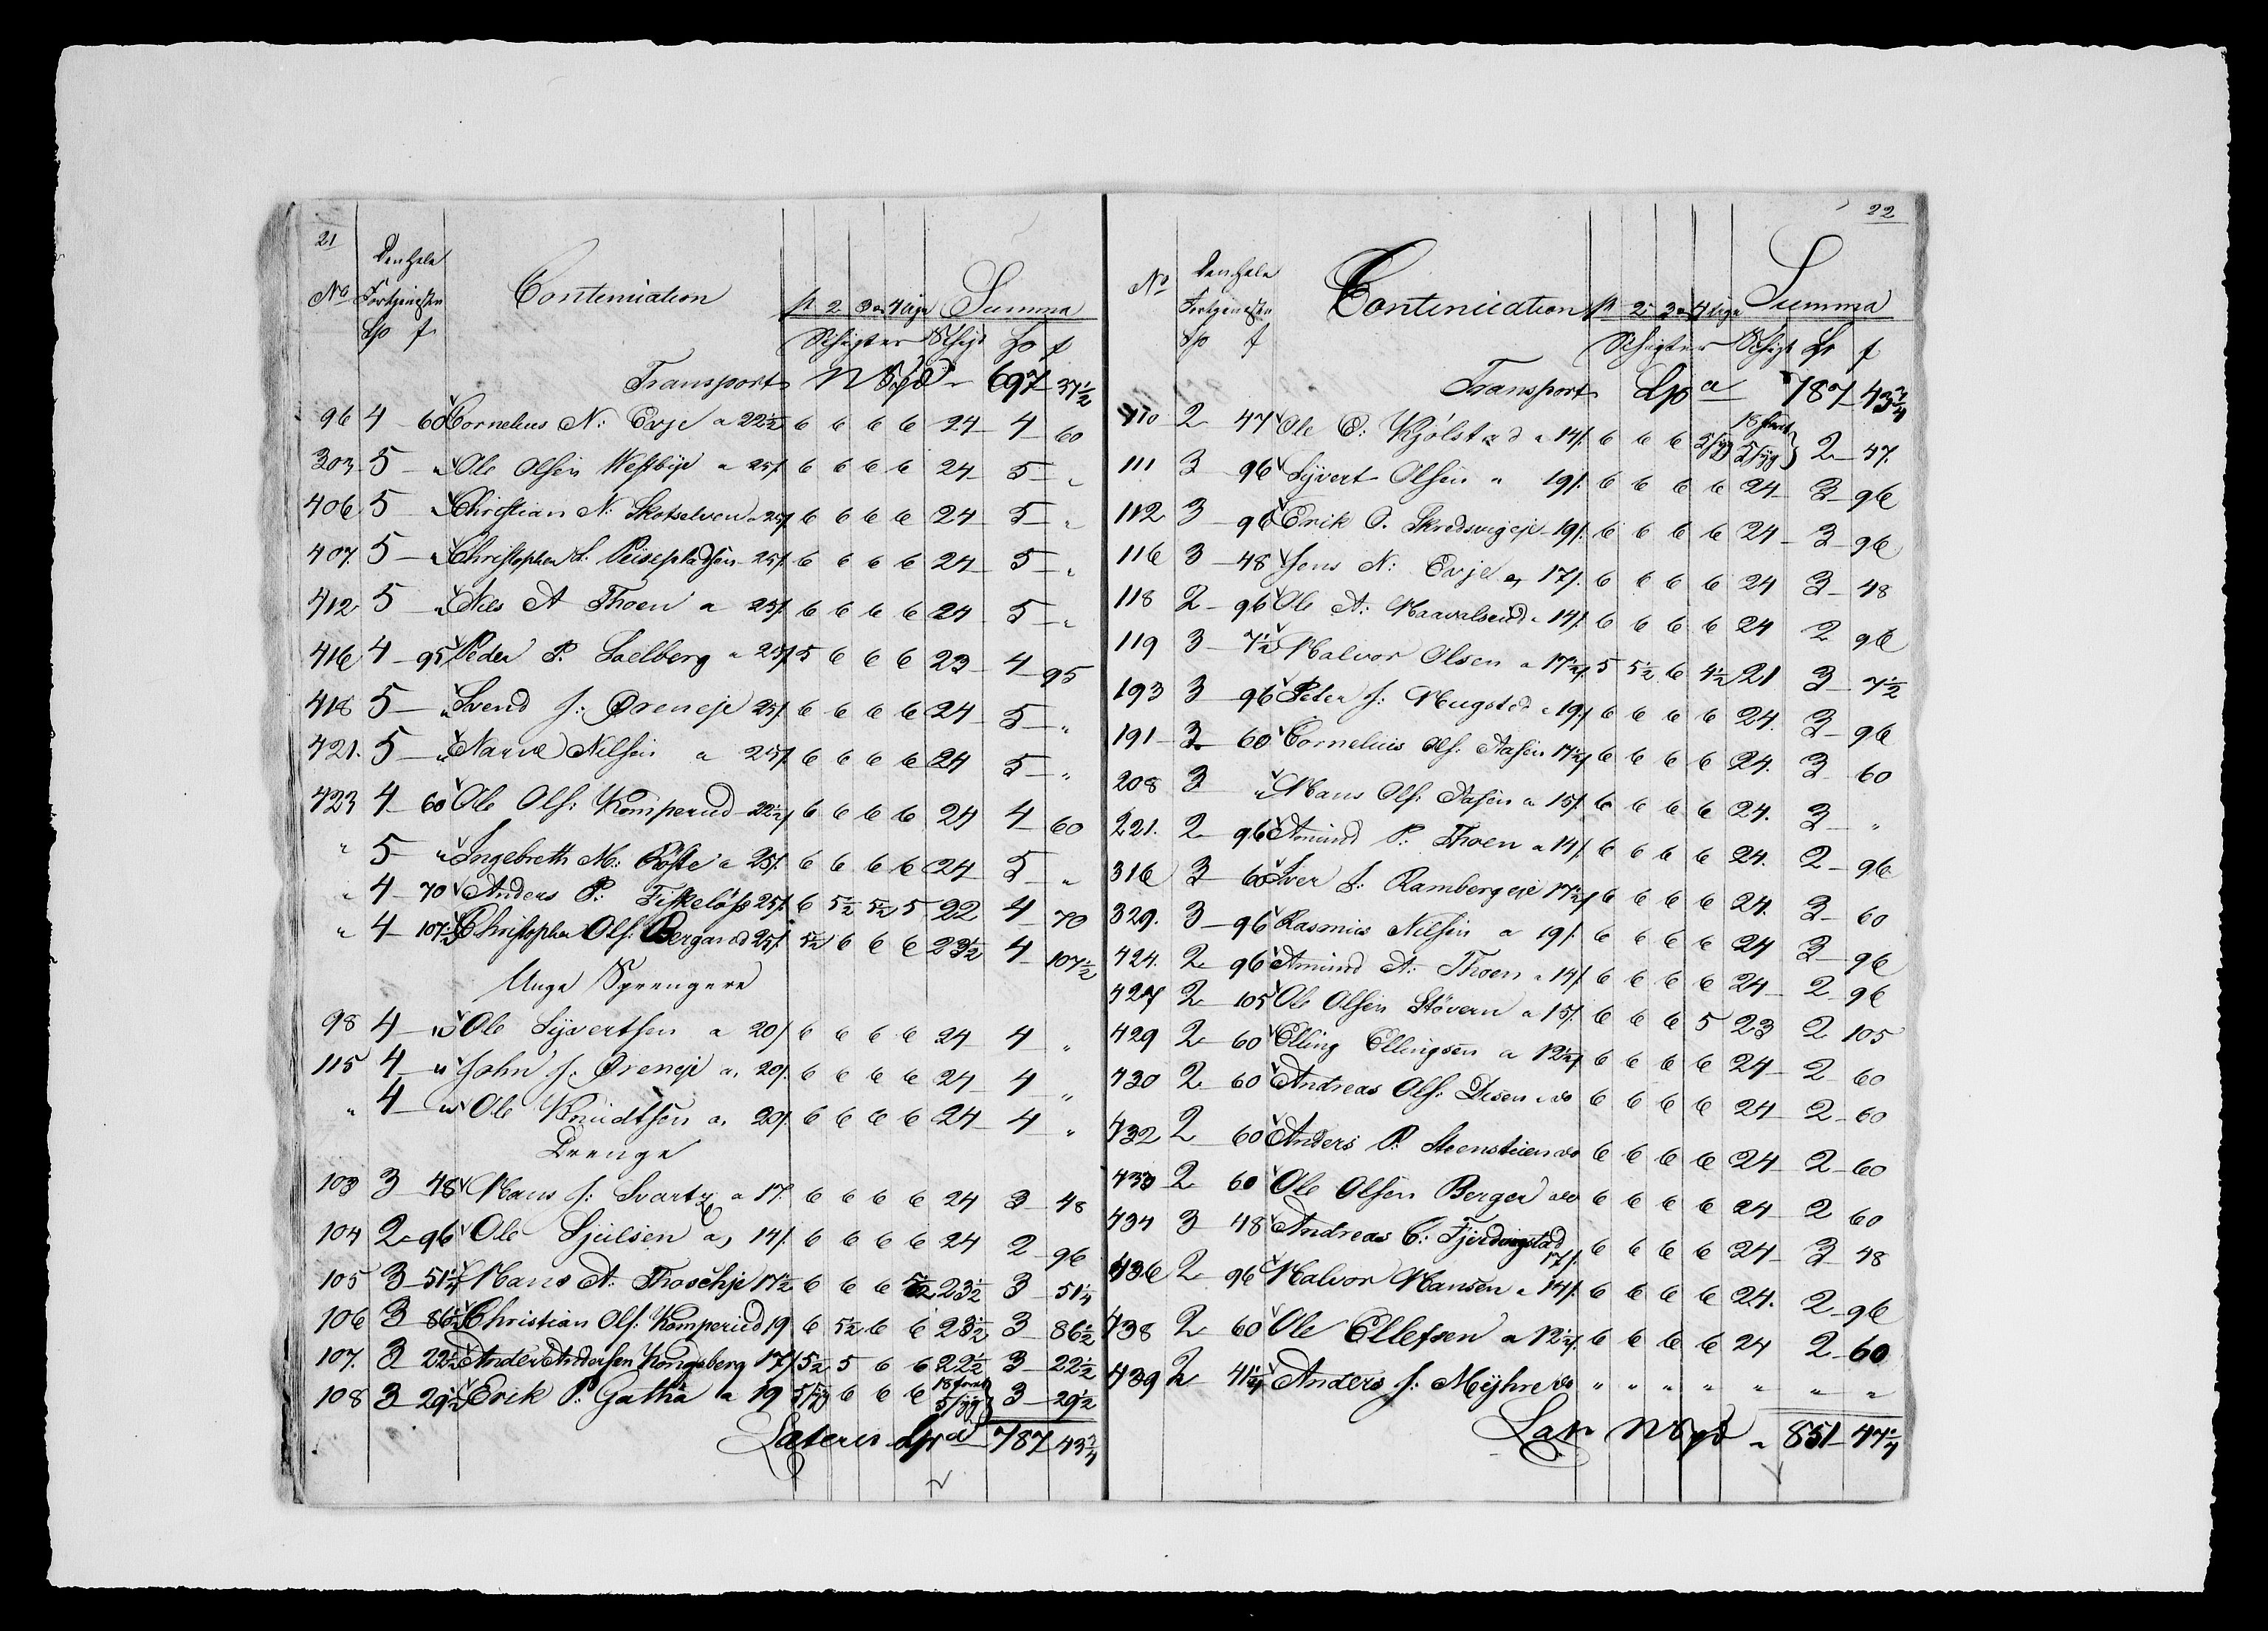 21
No Den hele Fortjenesten Continuation 1te 2 3 og 4 Uge Summa
Sp ſ Schigter Schigt Sp ſ
Transport 697 37½
96 4 60 Cornelius N: Evje a 22½ 6 6 6 6 24 4 60
303 5 " Ole Olsen Westbye a 25ſ 6 6 6 6 24 5 "
406 5 " Christian N: Skotselven a 25ſ 6 6 6 6 24 5 "
407. 5 " Christopher L. Peisepladsen 25ſ 6 6 6 6 24 5 "
412 5 " Niels A Thoen a 25ſ 6 6 6 6 24 5 "
416 4 95 Peder P. Loelberg a 25ſ 5 6 6 6 23 4 95
418 5 " Svend J: Øreneje 25ſ 6 6 6 6 24 5 "
421. 5 " Narve Nilsen a 25ſ 6 6 6 6 24 5 "
423 4 60 Ole Ols: Komperud 22½ 6 6 6 6 24 4 60
" 5 " Ingebreth M: Röste a 25ſ 6 6 6 6 24 5 "
" 4 70 Anders P: Fiskelös 25ſ 6 5½ 5½ 5 22 4 70
" 4 107½ Christopher Ols: Bergarud 25ſ 5½ 6 6 6 23½ 4 107½
Unge Sprengere
98 4 " Ole Syvertsen a 20ſ 6 6 6 6 24 4 "
115 4 " John J: Øreneje a 20ſ 6 6 6 6 24 4 "
" 4 " Ole Knudtsen a 20ſ 6 6 6 6 24 4 "
Drenge
103 3 48 Hans J: Svartz a 17. 6 6 6 6 24 3 48
104 2 96 Ole Sjulsen a 14ſ 6 6 6 6 24 2 96
105 3 51¼ Hans A: Thoschje 17½ 6 6 6 5½ 23½ 3 51¼
106 3 86½ Christian Ols: Komperud 19 6 5½ 6 6 23½ 3 86½
107. 3 22½ Ander Andersen Kongsberg 17ſ 5½ 5 6 6 22½ 3 22½
108 3 29½ Erik P: Gatha a 19 5/sy 6 6 6 18 5/syg 3 29½
Lateris 787 43¾
22
No Den hele Fortjenesten Continuation 1te 2 3 og 4 Uge Summa
Sp ſ Schigter Schigt Sp ſ
Transport 787 43¾
110 2 47 Ole E: Kjölstad a 14ſ 6 6 6 5/sy 18 5/syg 2 47.
111 3 96 Syvert Olsen a 19ſ 6 6 6 6 24 3 96
112 3 96 Erik O. Skredsvigeje 19ſ 6 6 6 6 24 3 96
116 3 48 Jens N: Evje a 17ſ 6 6 6 6 24 3 48
118 2 96 Ole A: Haavalsrud a 14ſ 6 6 6 6 24 2 96
119 3 7½ Halvor Olsen a 17½ 5 5½ 6 4½ 21 3 7½
193 3 96 Peder J: Hugsted a 19ſ 6 6 6 6 24. 3 96
191 3 60 Cornelius Ols: Aasen 17½ 6 6 6 6 24. 3 60
208 3 " Hans Ols: Aasen a 15ſ 6 6 6 6 24. 3 "
221. 2 96 Amund P: Thoen a 14ſ 6 6 6 6 24. 2 96
316 3 60 Iver I: Rambergeje 17½ 6 6 6 6 24. 3 60
329. 3 96 Rasmus Nilsen a 19ſ 6 6 6 6 24 3 96
424. 2 96 Amund A: Thoen a 14ſ 6 6 6 6 24 2 96
427 2 105 Ole Olsen Stövern a 15ſ 6 6 6 5 23 2 105
429 2 60 Elling Ellingsen a 12½ 6 6 6 6 24 2 60
430 2 60 Andreas Ols: Disen a do 6 6 6 6 24 2 60
432 2 60 Anders P: Steenstuen do 6 6 6 6 24 2 60
433 2 60 Ole Olsen Berger do 6 6 6 6 24 2 60
434 3 48 Andreas C: Fjerdingstad 17ſ. 6 6 6 6 24 3 48
436 2 96 Halvor Hansen a 14ſ 6 6 6 6 24. 2 96
438 2 60 Ole Ellefsen a 12½ 6 6 6 6 24 2 60
439 2 41¼ Anders J: Myhre do " " " " " " "
Lat 851 47¼